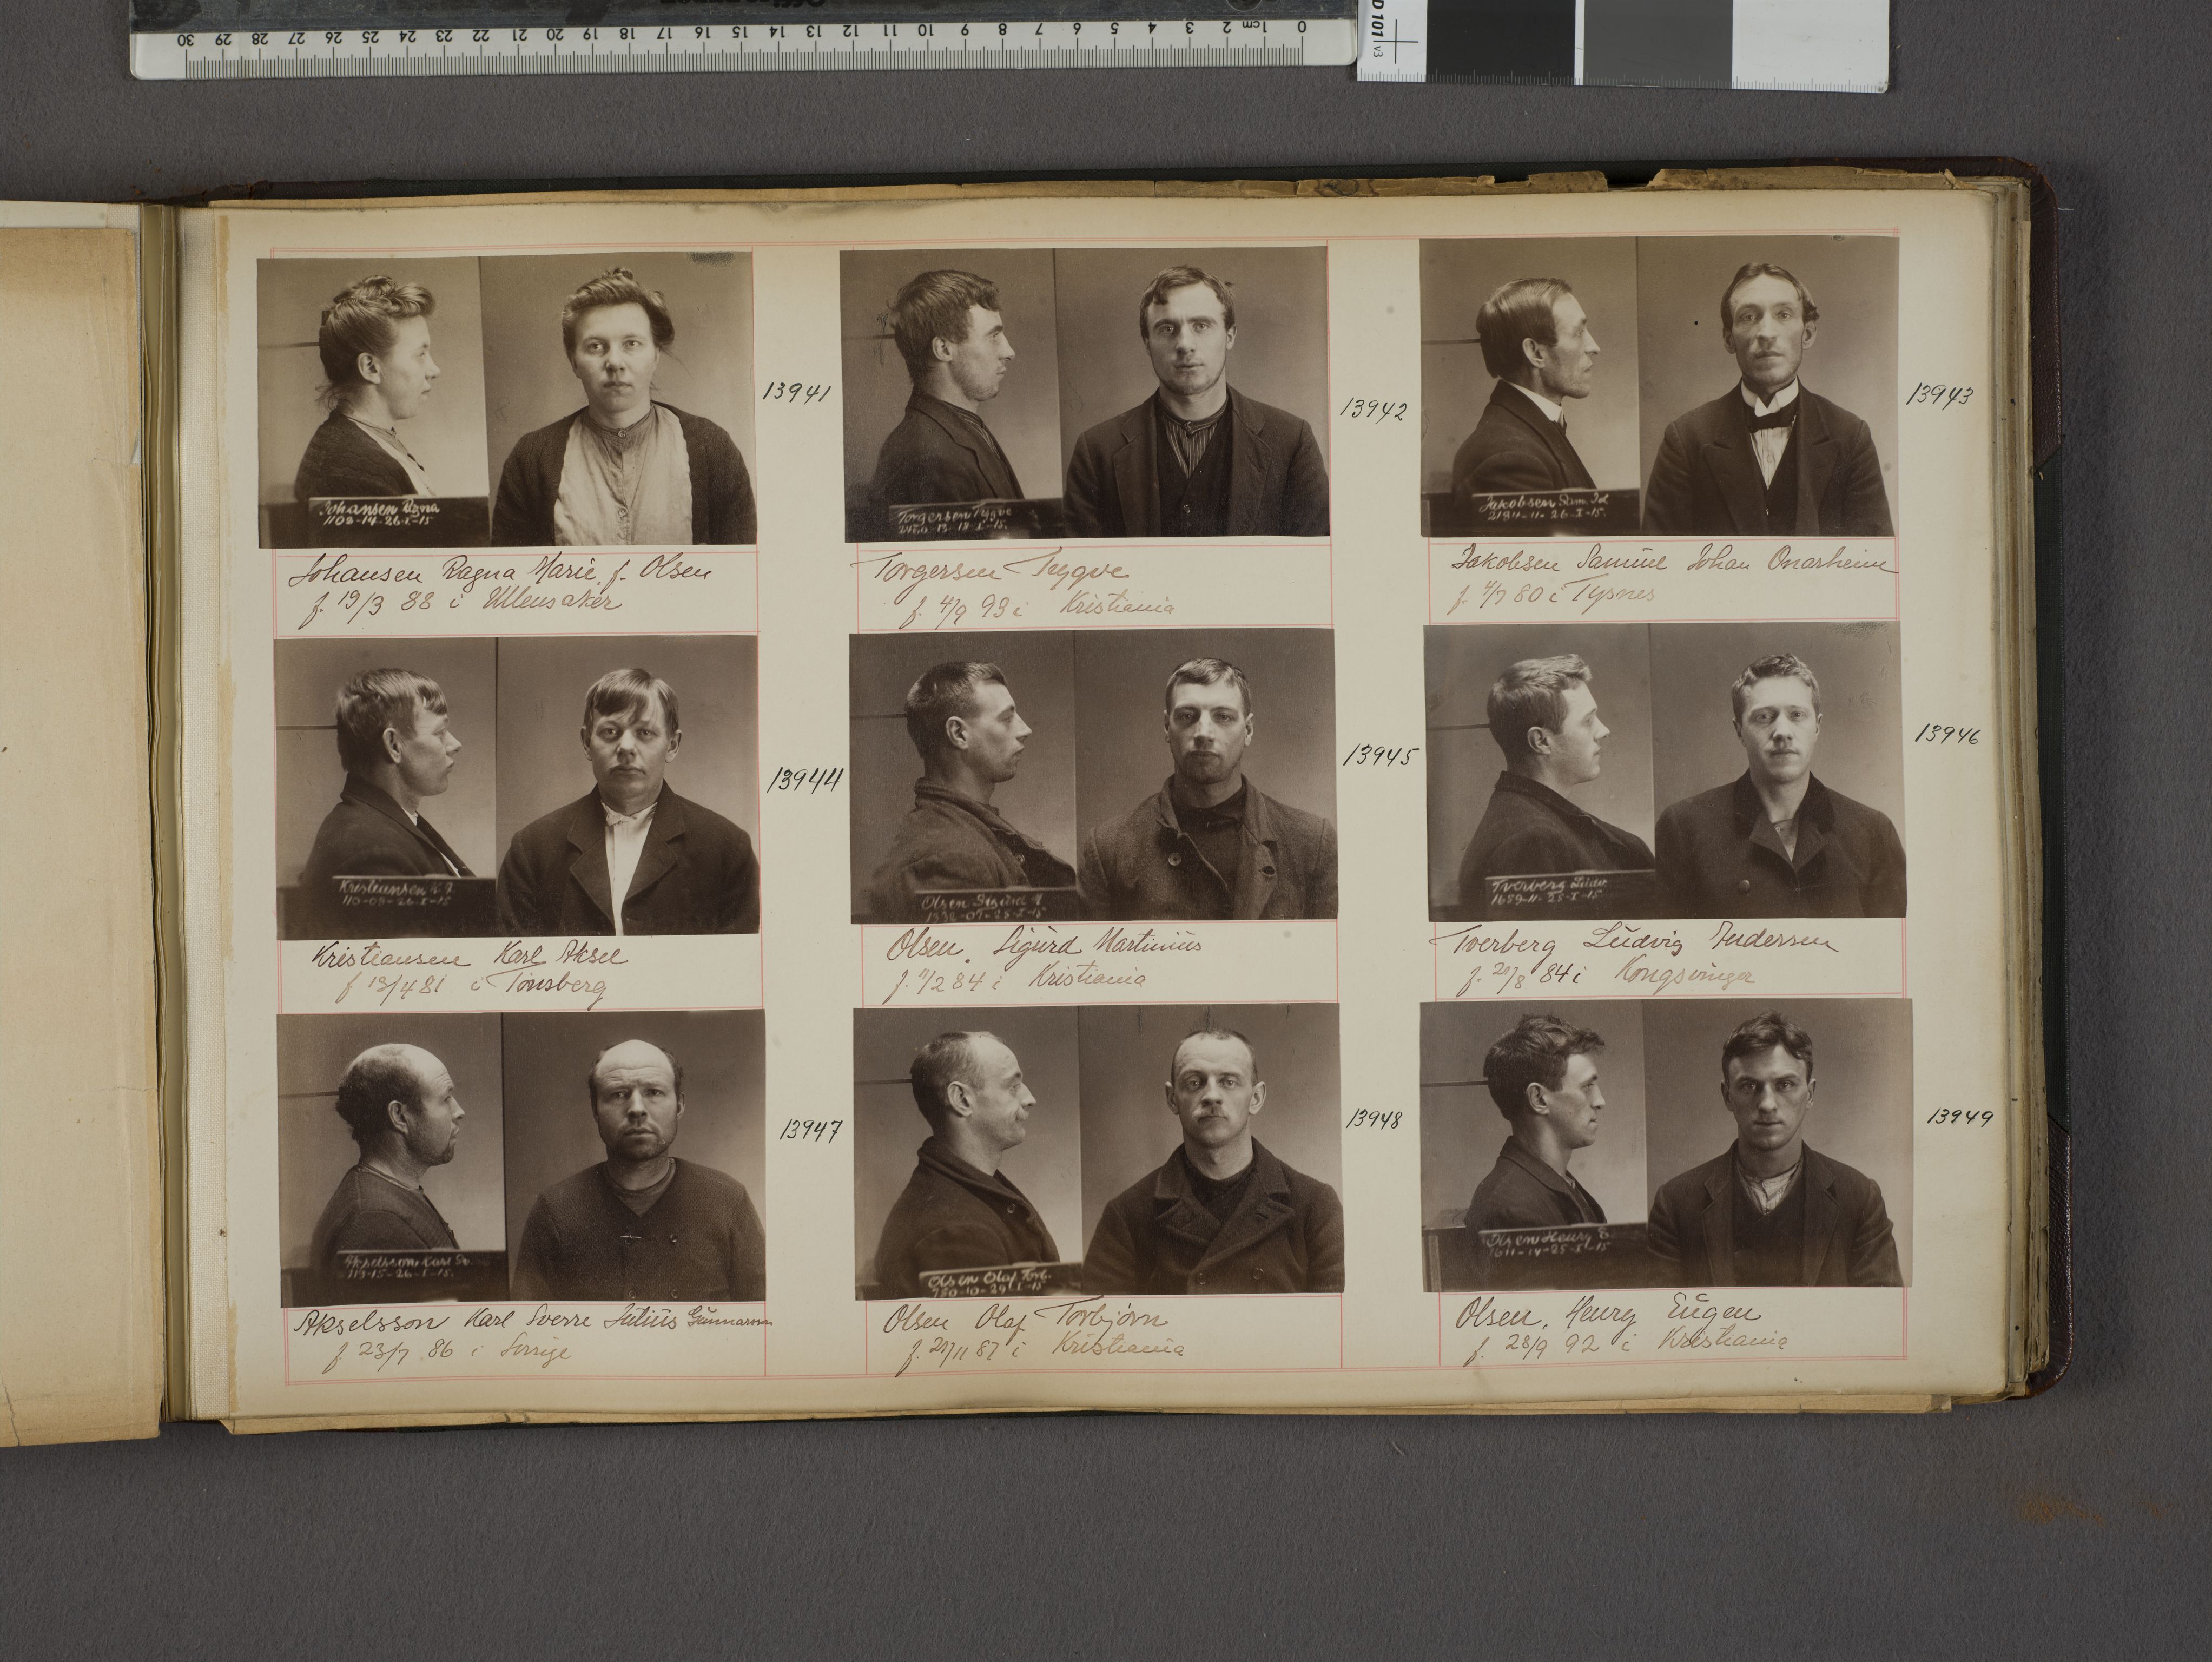 0 1cm 2 3 4 5 6 7 8 9 10 11 12 13 14 15 16 17 18 19 20 21 22 23 24 25 26 27 28 29 30
D 101 v3
Johansen Ragna
1108-14-26-I-15
13941
Torgersen Tygve
2480-13-19-I-15.
13942
Jakobsen Sam. Joh
2184-11-26-I-15.
13943
Johansen Ragna Marie, f. Olsen
f. 19/3 88 i Ullensaker
Torgersen Tygve
f. 4/9 93 i Kristiania
Jakobsen Samuel Johan Onarheim
f. 4/7 80 i Tysnes
Kristiansen K. A.
110-09-26-I-15
13944
Olsen Sigurd M.
1332-07-25-I-15
13945
Tverberg Ludv.
1659-11-25-I-15.
13946
Kristiansen Karl Aksel
f 13/4 81 i Tönsberg
Olsen, Sigurd Martinius
f. 1/2 84 i Kristiania
Tverberg Ludvig Andersen
f. 21/8 84 i Kongsvinger
Akselsson Karl Sv.
119-15-26-I-15.
13947
Olsen Olaf Torb.
780-10-29-I-15
13948
Olsen Henry E.
1611-14-25-I-15
13949
Akselsson Karl Sverre Julius Gunnarson
f. 23/7 86 i Sverige
Olsen Olaf Torbjörn
f. 27/11 87 i Kristiania
Olsen, Henry Eugen
f. 28/9 92 i Kristiania